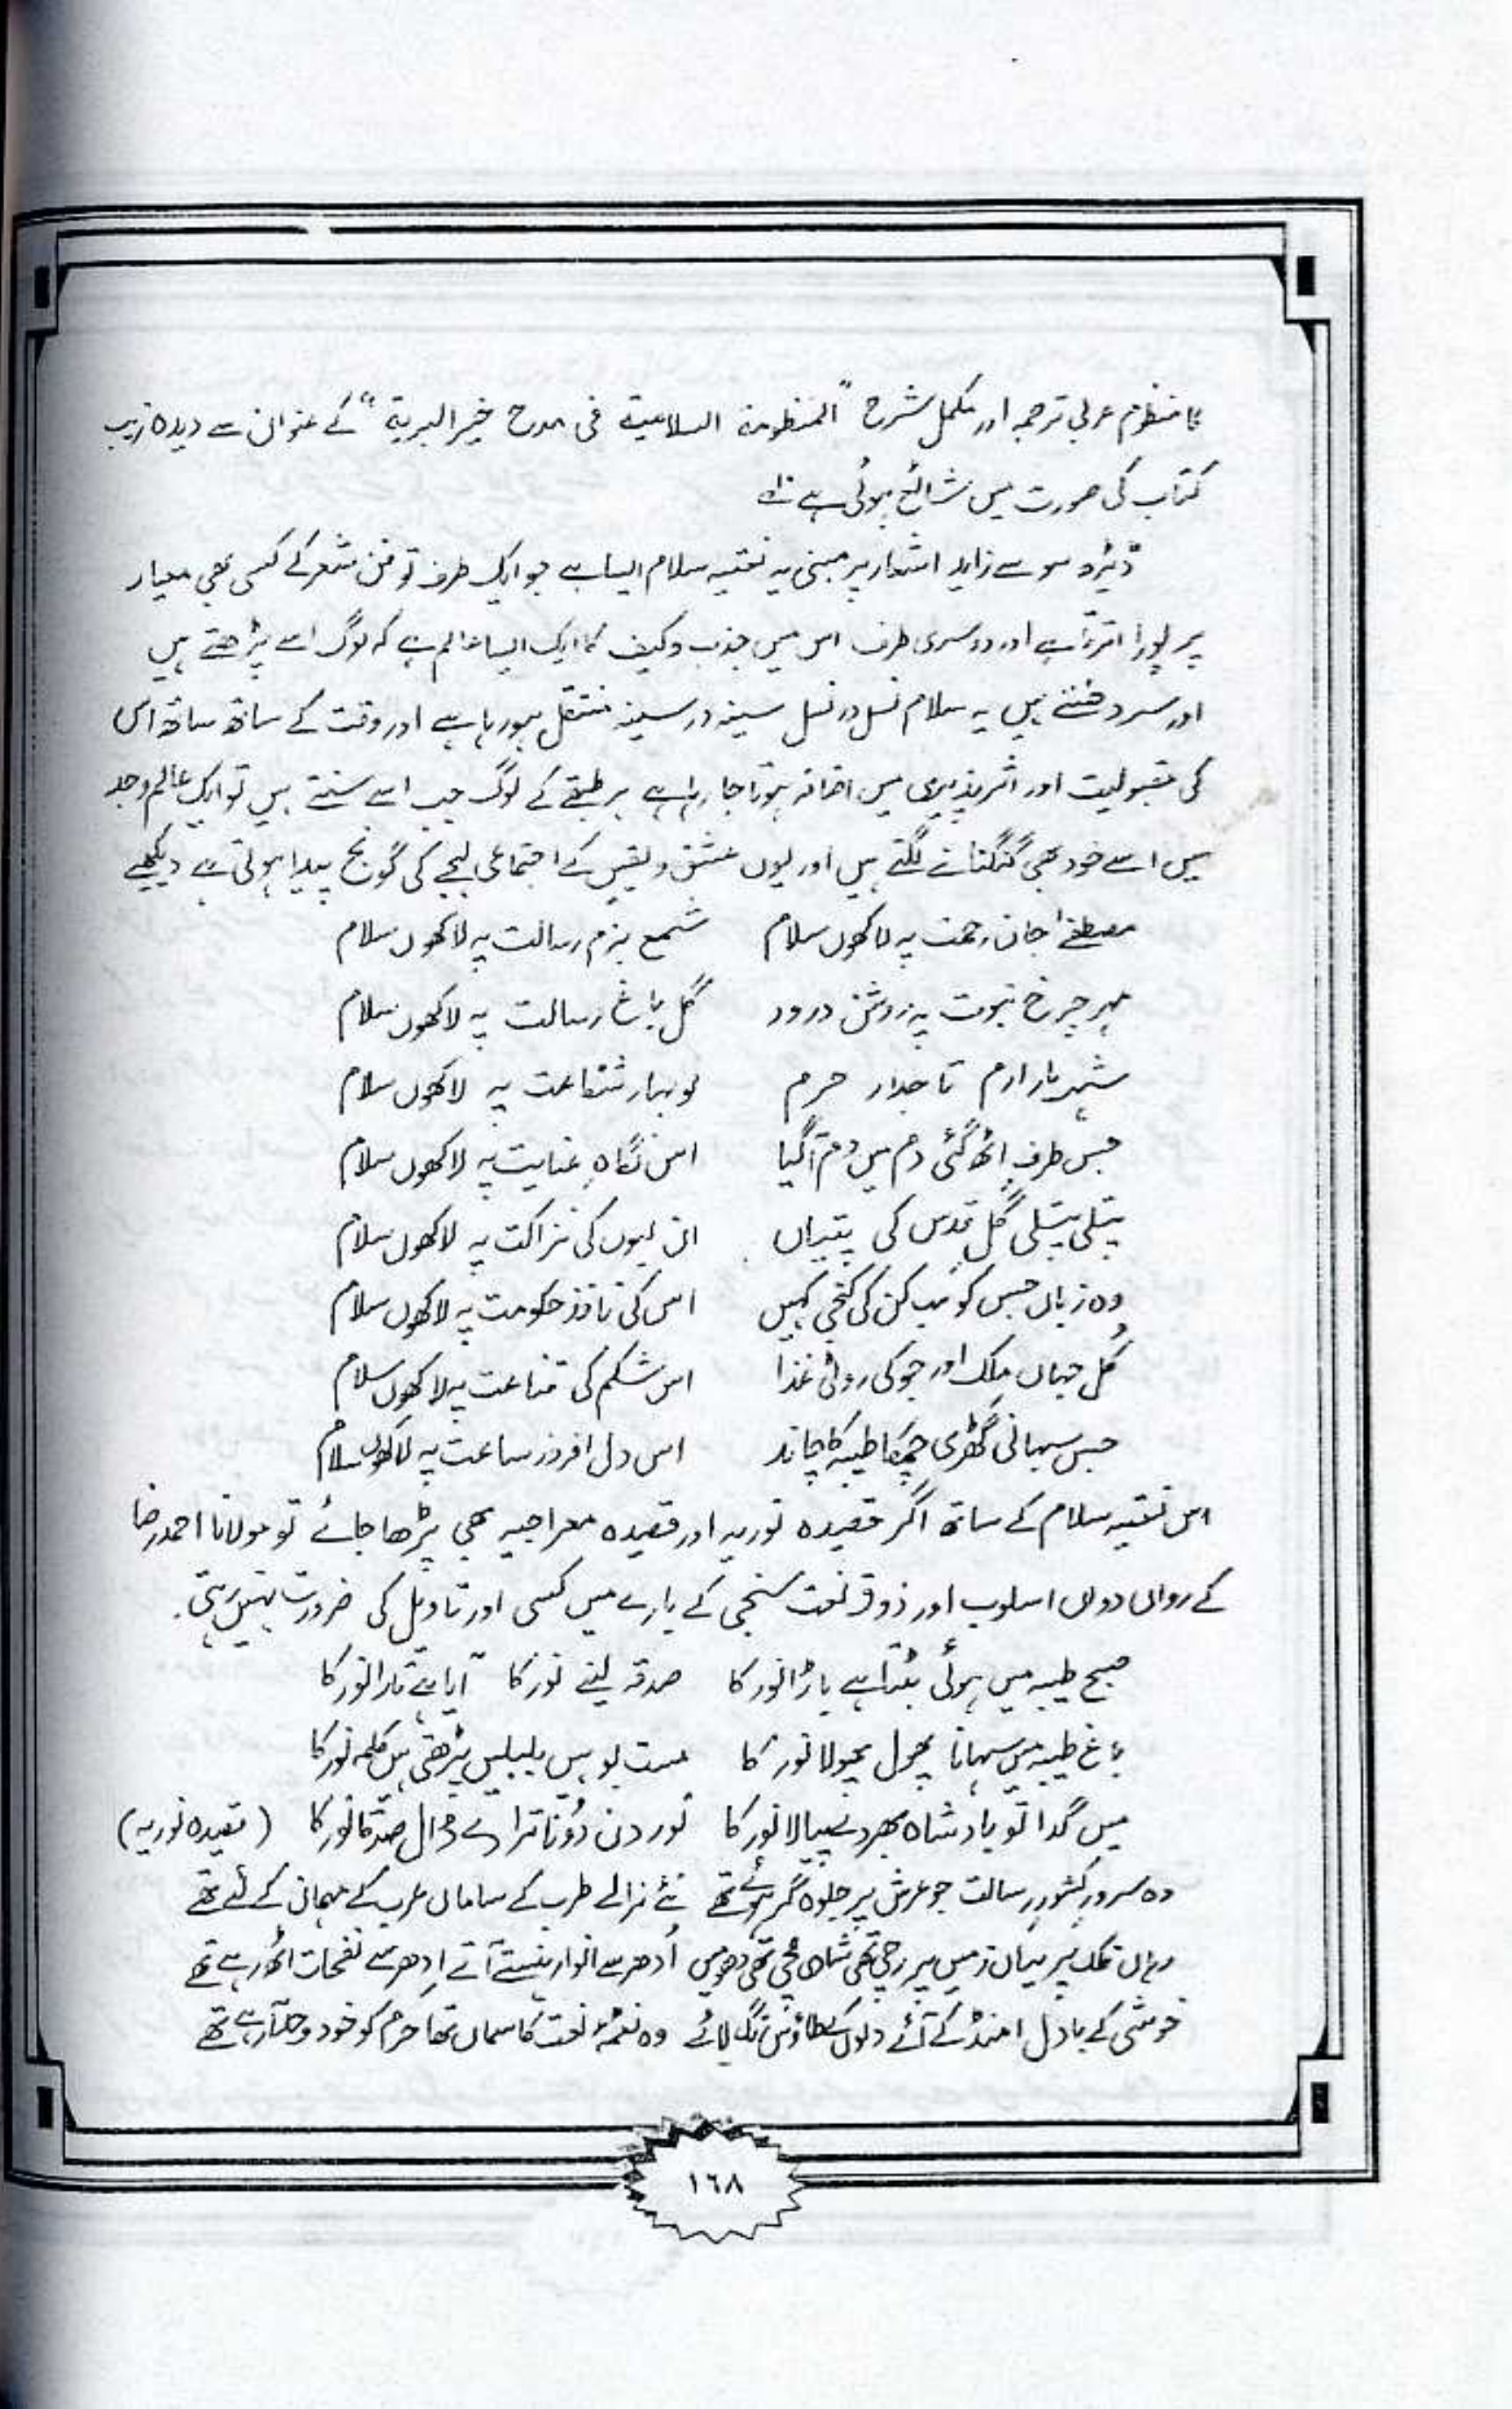 کا منظوم عربی ترجمہ اور مکمل شرح "المنظومة السلامية فی مدح خیر البریة" کے عنوان سے دیدہ زیب
کتاب کی صورت میں شائع ہوئی ہے
ڈیڑھ سو سے زاید اشعار پر مبنی یہ نعتیہ سلام ایسا ہے جو ایک طرف تو فن شعر کے کسی بھی معیار
پر پورا اترتا ہے اور دوسری طرف اس میں جذب و کیف کا ایک ایسا عالم ہے کہ لوگ اسے پڑھتے ہیں
اور سر دھنتے ہیں یہ سلام نسل در نسل سینہ در سینہ منتقل ہو رہا ہے اور وقت کے ساتھ ساتھ اس
کی مقبولیت اور اثر پذیری میں اضافہ ہوتا جا رہا ہے ہر طبقے کے لوگ جب اسے سنتے ہیں تو ایک عالم وجد
میں اسے خود بھی گنگنانے لگتے ہیں اور یوں عشق و یقیں کے اجتماعی لہجے کی گونج پیدا ہوتی ہے دیکھیے
مصطفےٰ جان رحمت پہ لاکھوں سلام شمع بزم رسالت پہ لاکھوں سلام
مہر چرخ نبوت پہ روشن درود گل باغ رسالت پہ لاکھوں سلام
شہر یار ارم تاجدار حرم نو بہار شفاعت پہ لاکھوں سلام
جس طرف اٹھ گئی دم میں دم آگیا اس نگاہِ عنایت پہ لاکھوں سلام
پتلی پتلی گُلِ قدس کی پتیاں ان لبوں کی نزاکت پہ لاکھوں سلام
وہ زباں جس کو سب کن کی کنجی کہیں اس کی نافذ حکومت پہ لاکھوں سلام
کُل جہاں ملک اور جو کی روٹی غذا اس شکم کی قناعت پہ لاکھوں سلام
جس سہانی گھڑی چمکا طیبہ کا چاند اس دل افروز ساعت پہ لاکھوں سلام
اس نعتیہ سلام کے ساتھ اگر قصیدہ نوریہ اور قصیدہ معراجیہ بھی پڑھا جائے تو مولانا احمد رضا
کے رواں دواں اسلوب اور ذوقِ نعت سنجی کے بارے میں کسی اور تاویل کی ضرورت نہیں رہتی۔
صبح طیبہ میں ہوئی بٹتا ہے باڑا نور کا صدقہ لینے نور کا آیا ہے تارا نور کا
باغ طیبہ میں سہانا پھول پھولا نور کا مست بو ہیں بلبلیں پڑھتی ہیں کلمہ نور کا
میں گدا تو بادشاہ بھر دے پیالا نور کا نور دن دُونا ترا دے ڈال صدقہ نور کا (قصیدہ نوریہ)
وہ سرورِ کشورِ رسالت جو عرش پر جلوہ گر ہوئے تھے نئے نرالے طرب کے ساماں عرب کے مہمان کے لئے تھے
وہاں فلک پر یہاں زمیں پر رچی تھی شادی مچی تھی دھومیں اُدھر سے انوار ہنستے آتے اِدھر سے نفحات اٹھ رہے تھے
خوشی کے بادل امنڈ کے آئے دلوں کے طاؤس رنگ لائے وہ نغمۂ نعت کا سماں تھا حرم کو خود وجد آ رہے تھے
١٦٨